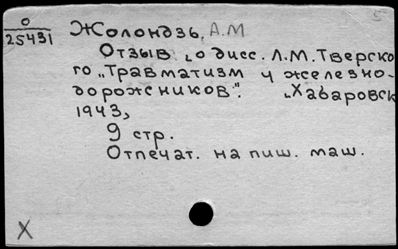 О
25431
Жолондзь, А.М
Отзыв о дисс. Л.М. Тверско
го „Травматизм у железно-
дорожников". Хабаровск
1943,
9 стр.
Отпечат. на пиш. маш.
X